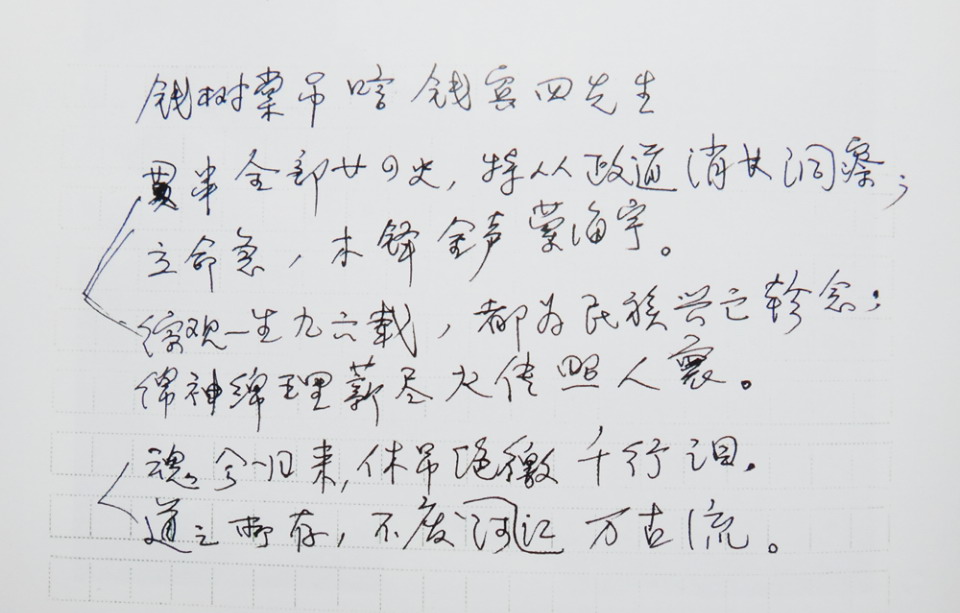 钱树棠吊唁钱宾四先生
贯串全部廿四史，特从政道消长洞察；
立命意，木铎金声蒙海宇。
综观一生九六载，都为民族兴亡轸念；
绵神绵理薪尽火传照人寰。
魂兮归来，休吊绝徼千行泪。
道之所存，不废江河万古流。